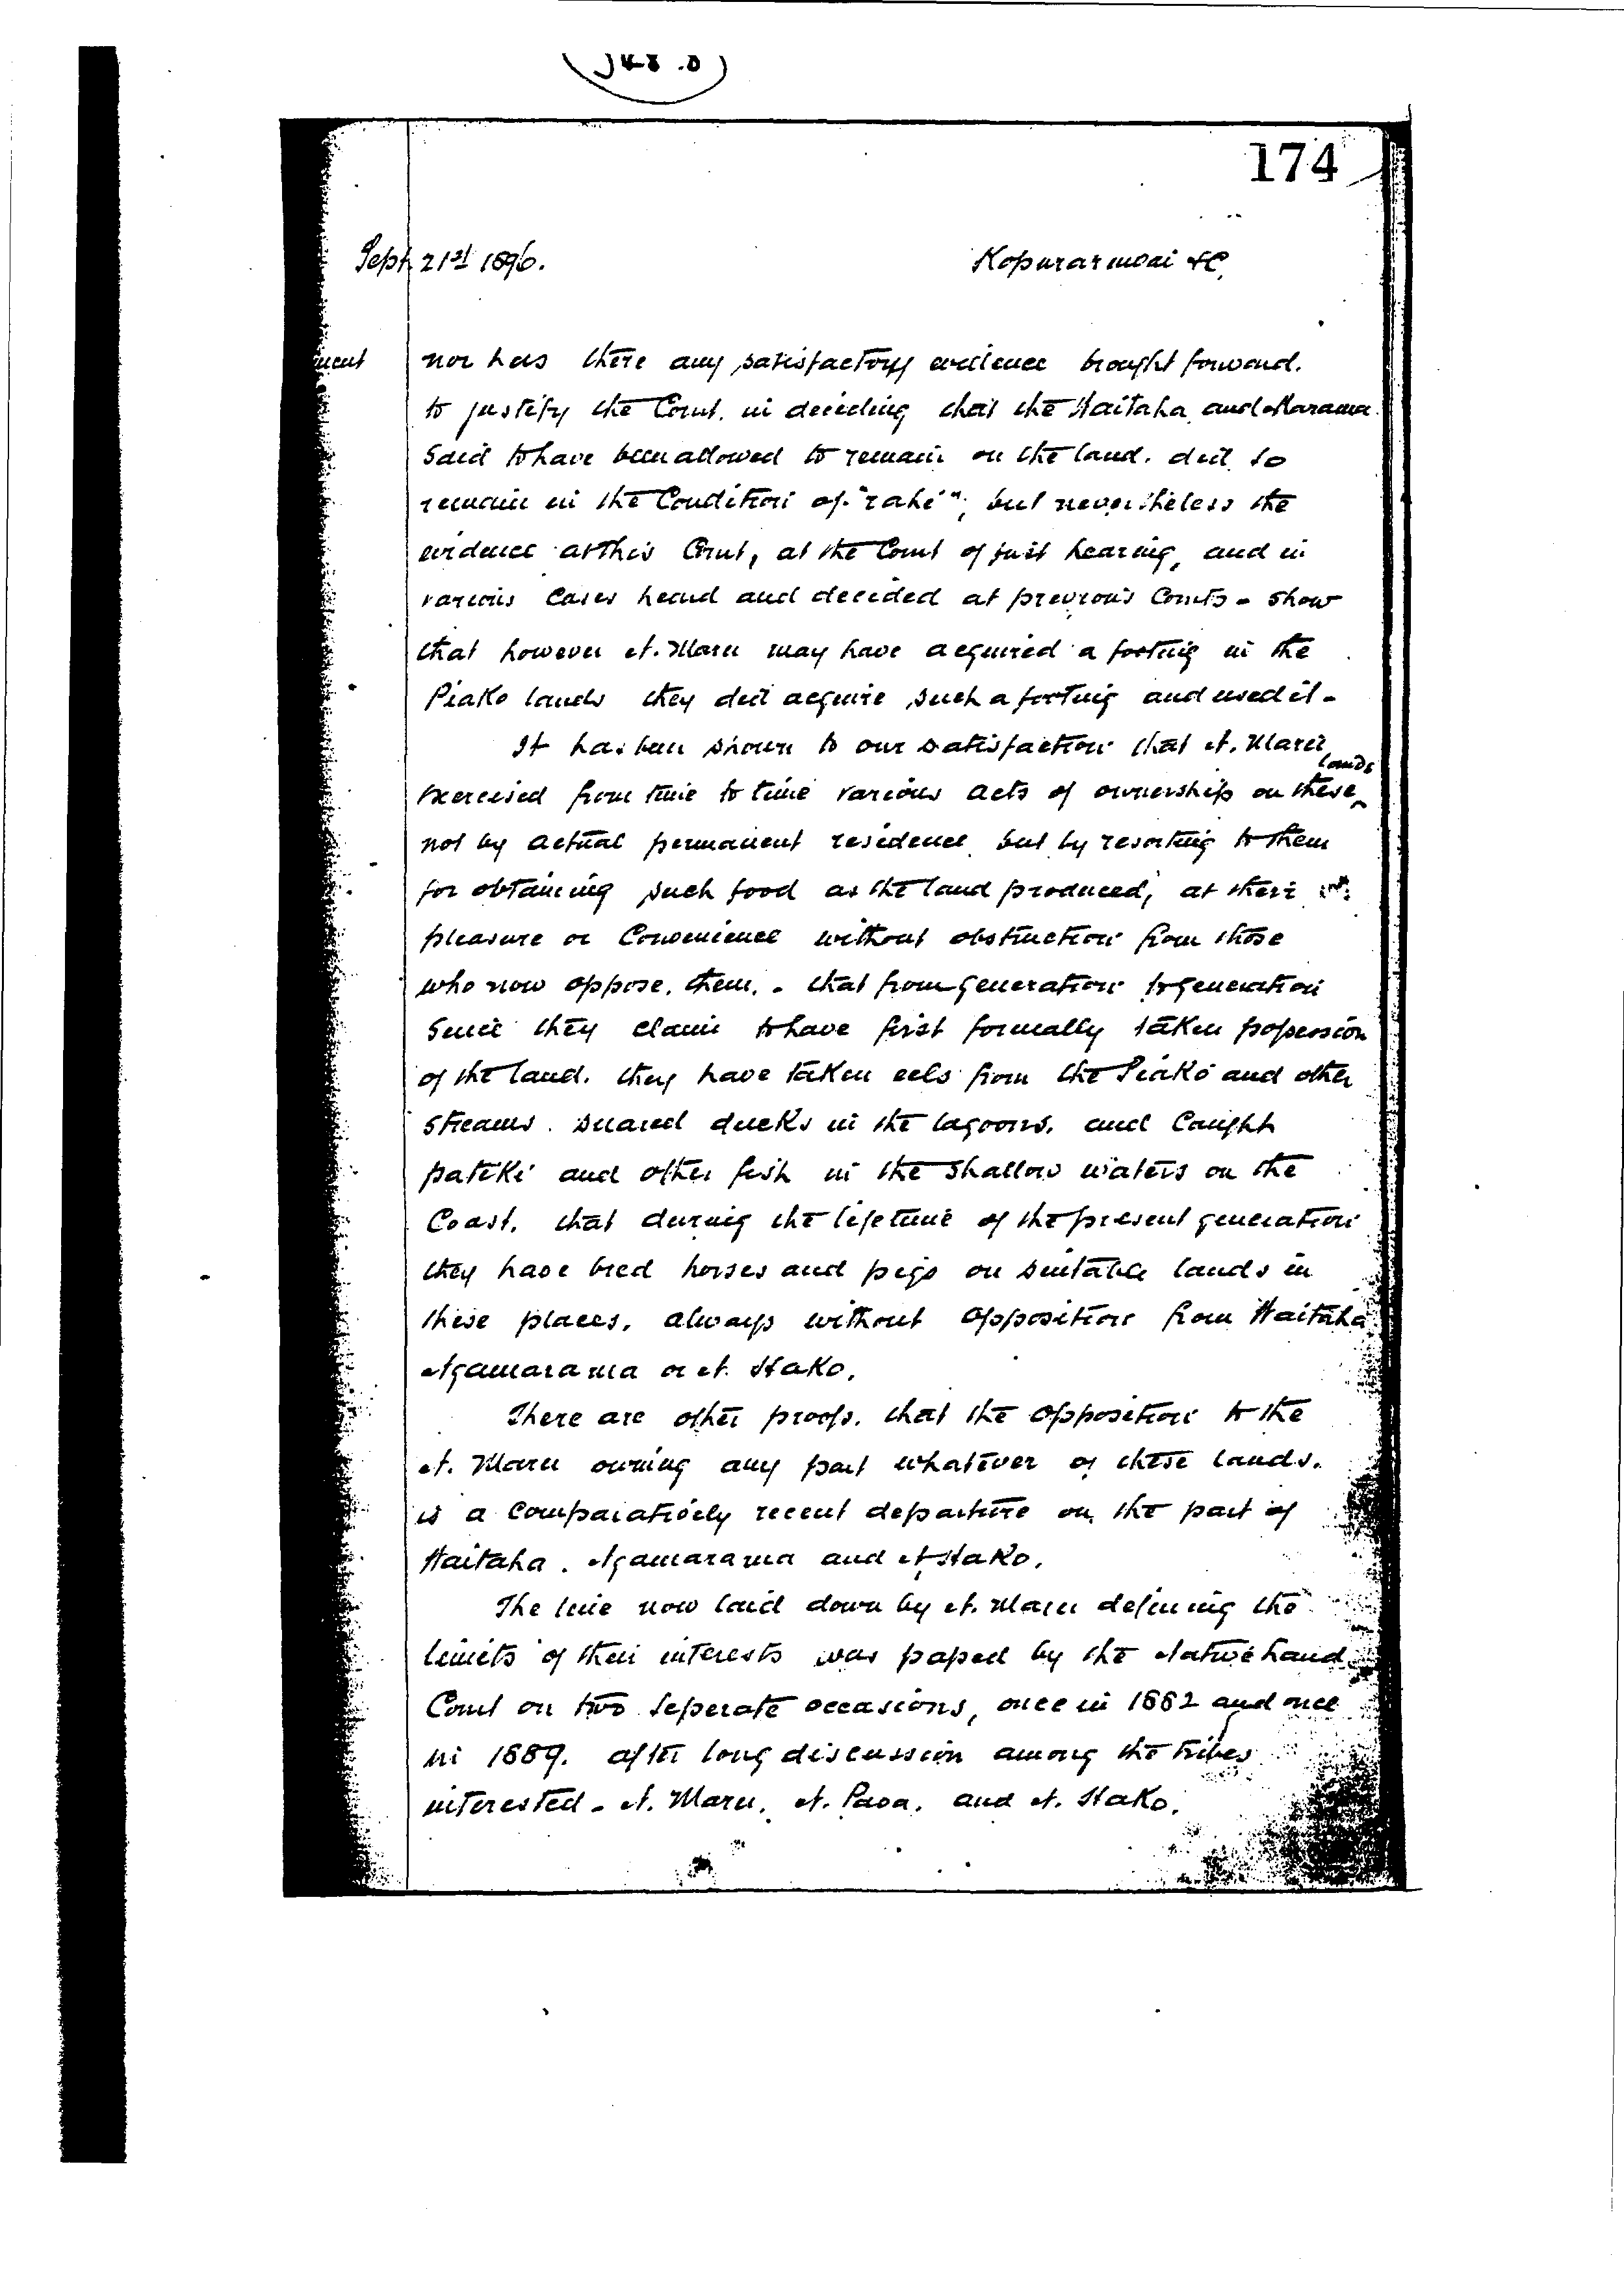 174
Sept 21st 1896. Kopuraruwai &c.
ment nor has there any satisfactory evidence brought forward.
to justify the Court. in deciding that the Waitaha and Marama
said to have been allowed to remain on the land. did so
remain in the Condition of "rahi"; but nevertheless the
evidence at this Court, at the Court of first hearing, and in
various Cases heard and decided at previous Courts - show
that however N. Maru may have acquired a footing in the
Piako lands they did acquire such a footing and used it -
It has been shown to our satisfaction that N. Maru
exercised from time to time various acts of ownership on these lands
not by actual permanent residence but by resorting to them
for obtaining such food as the land produced, at their
pleasure or Convenience without obstruction from those
who now oppose. them. - that from generation to generation
since they claim to have first formally taken possession
of the land. they have taken eels from the Piako and other
streams. snared ducks in the lagoons. and Caught
patiki and other fish in the shallow waters on the
Coast. that during the lifetime of the present generation
they have bred horses and pigs on suitable lands in
these places. always without opposition from Waitaha
Ngamarama or N. Hako.
There are other proofs. that the opposition to the
N. Maru owning any part whatever of these lands.
is a Comparatively recent departure on the part of
Waitaha. Ngamarama and N. Hako.
The line now laid down by N. Maru defining the
limits of their interests was passed by the Native Land
Court on two seperate occasions, once in 1882 and once
in 1889. after long discussion among the tribes
interested - N. Maru. N. Paoa. and N. Hako.